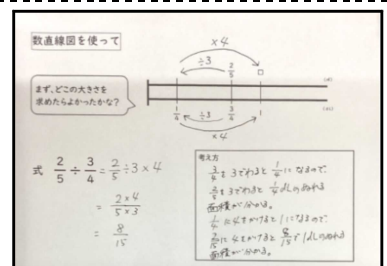 数直線図を使って
×4
÷3
2/5 □
まず、どこの大きさを
求めたらよかったかな?
1/4 3/4 1
÷3
×4
式 2/5 ÷ 3/4 = 2/5 ÷ 3 × 4
= 2×4/5×3
= 8/15
考え方
3/4を3でわると1/4になるので、
2/5を3でわると1/4dLのぬれる
面積が分かる。
1/4に4をかけると1になるので、
2/15に4をかけると8/15で1dLのぬれる
面積が分かる。